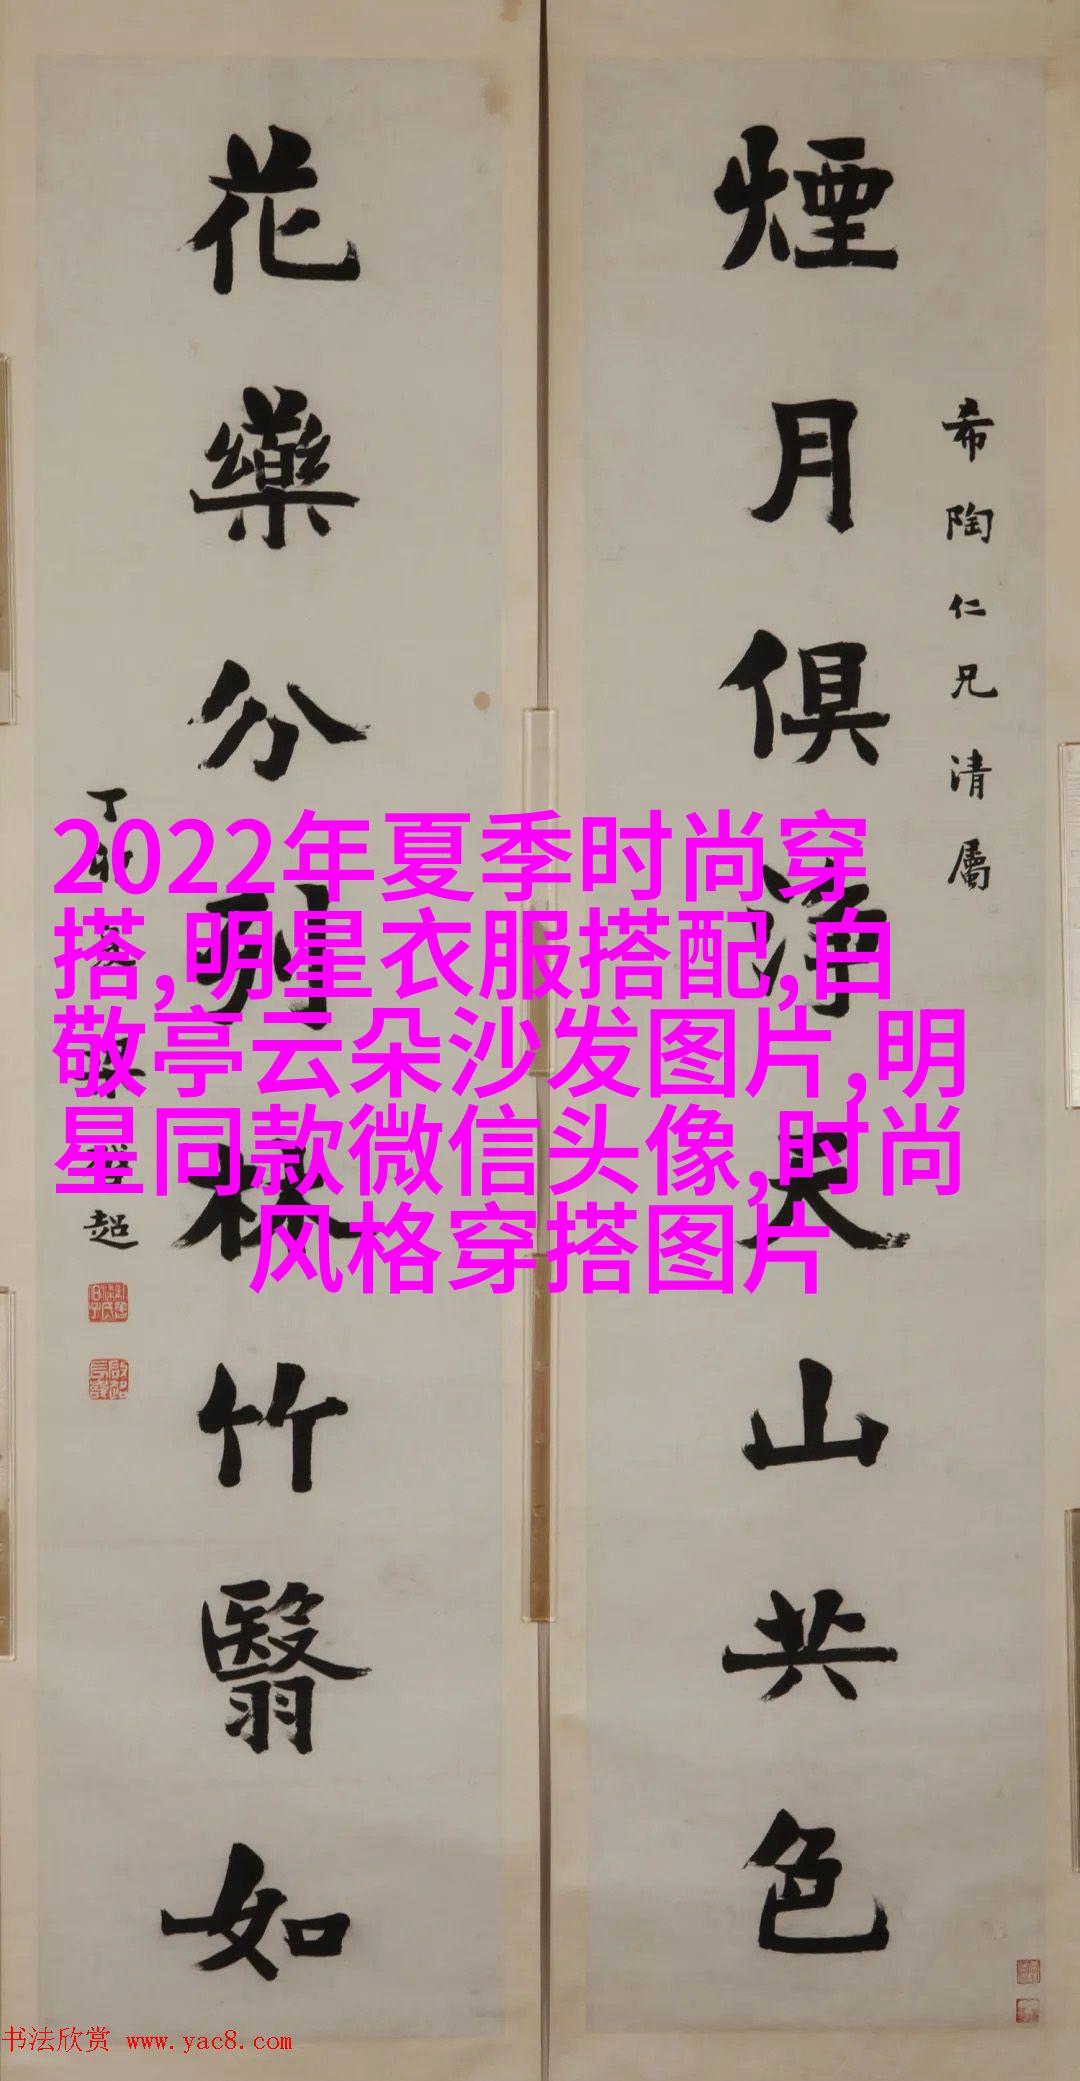 希陶仁兄清屬
煙月俱淨天山共色
花藥分列林竹翳如
丁卯 梁啓超
2022年夏季时尚穿
搭,明星衣服搭配,白
敬亭云朵沙发图片,明
星同款微信头像,时尚
风格穿搭图片
书法欣赏 www.yac8.com